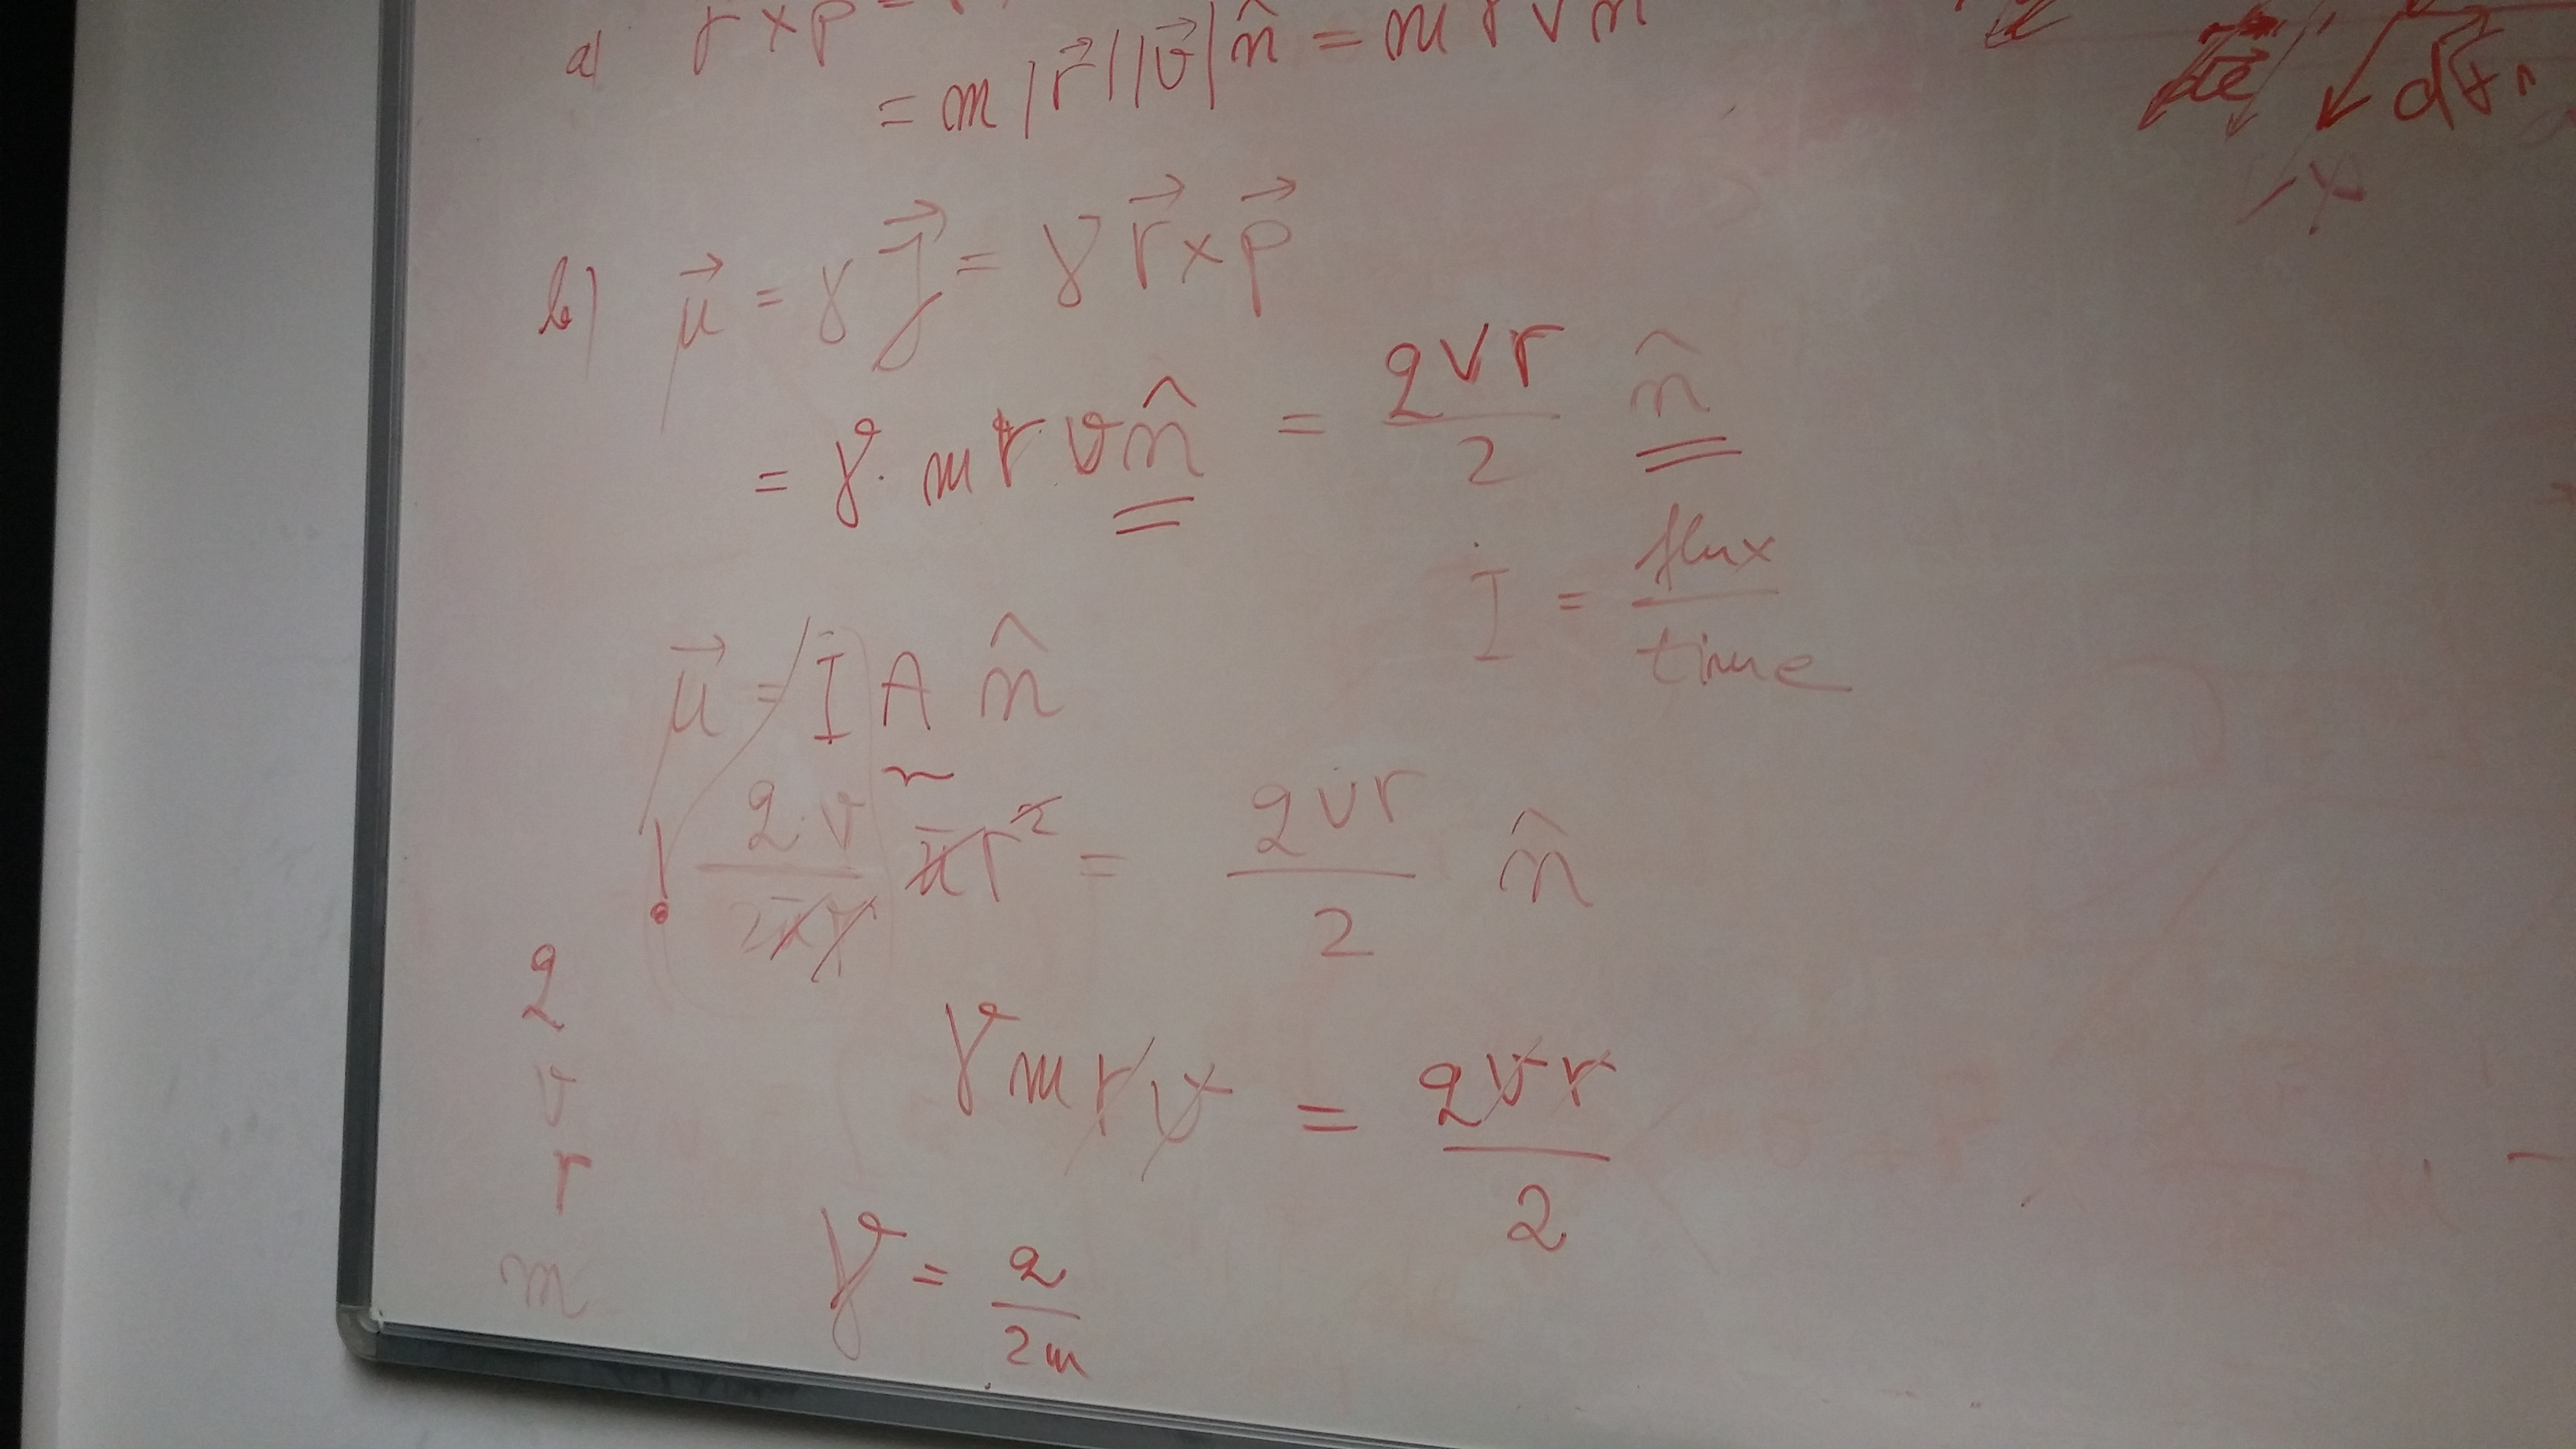 a) r × p =
= m |r⃗| |v⃗| n̂ = m r v n̂
b) μ⃗ = γ J⃗ = γ r⃗ × p⃗
= γ · m r v n̂ = qvr/2 n̂
I = flux/time
μ⃗ = I A n̂
q·v/2πr πr² = qvr/2 n̂
q
v
r
m
γ m r v = qvr/2
γ = q/2m